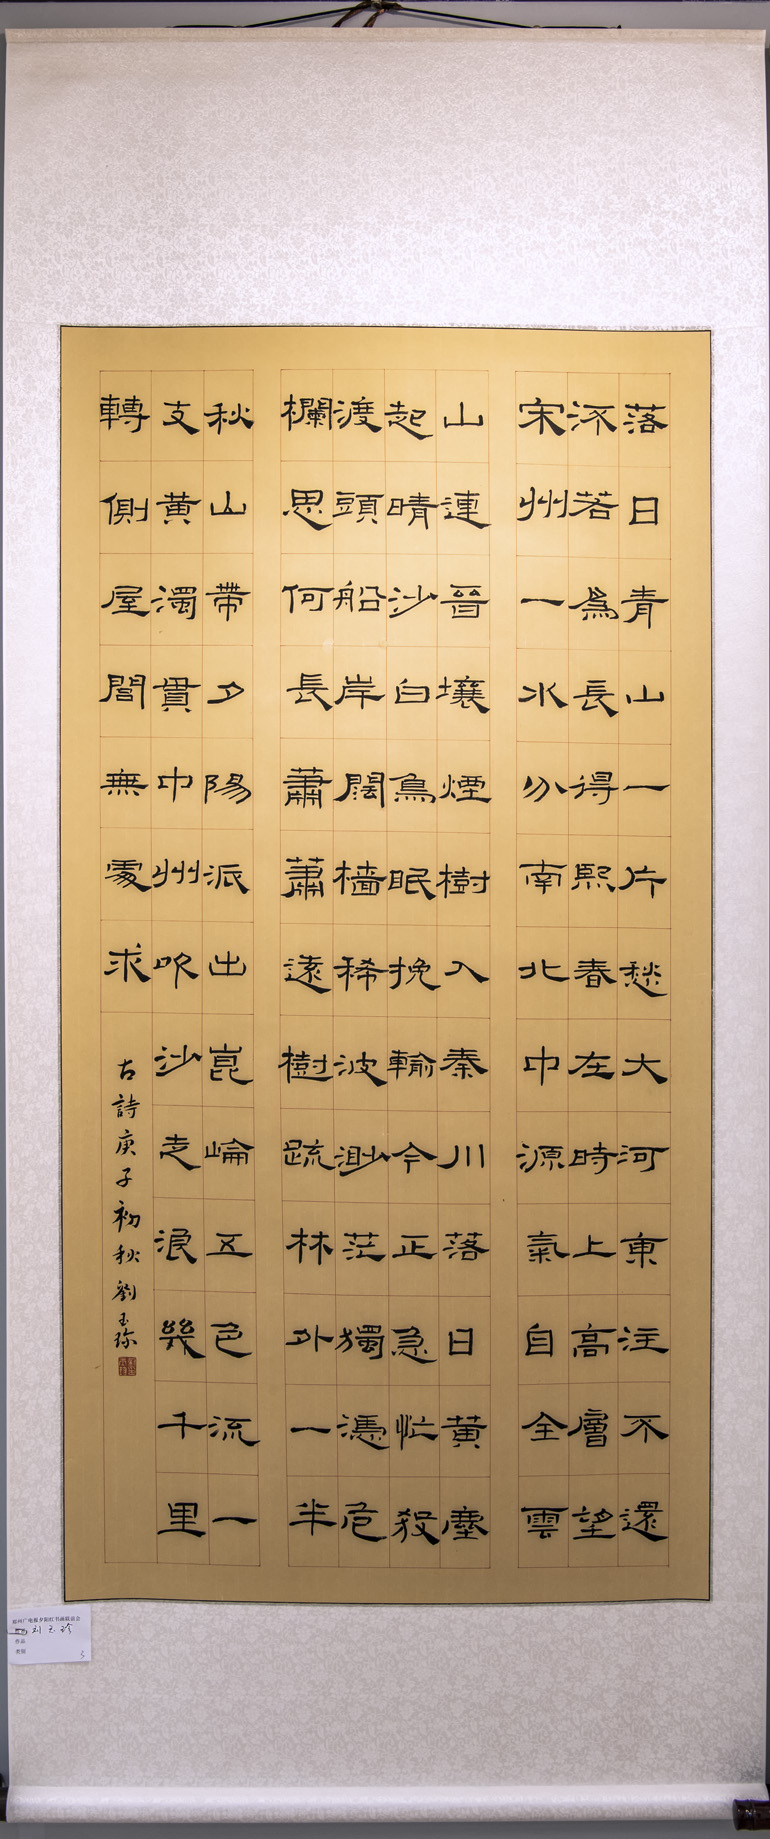 落日青山一片愁大河東注不還
流若為長得熙春在時上高層望
宋州一水分南北中源氣自全雲
山連晉壤煙樹入秦川落日黃塵
起晴沙白鳥眠挽輸今正急忙殺
渡頭船岸闊檣稀波渺茫獨憑危
欄思何長蕭蕭遠樹疏林外一半
秋山帶夕陽派出崑崙五色流一
支黃濁貫中州吹沙走浪幾千里
轉側屋閭無處求
古詩庚子初秋劉玉珍
郑州广电报夕阳红书画联谊会
刘玉珍
作品